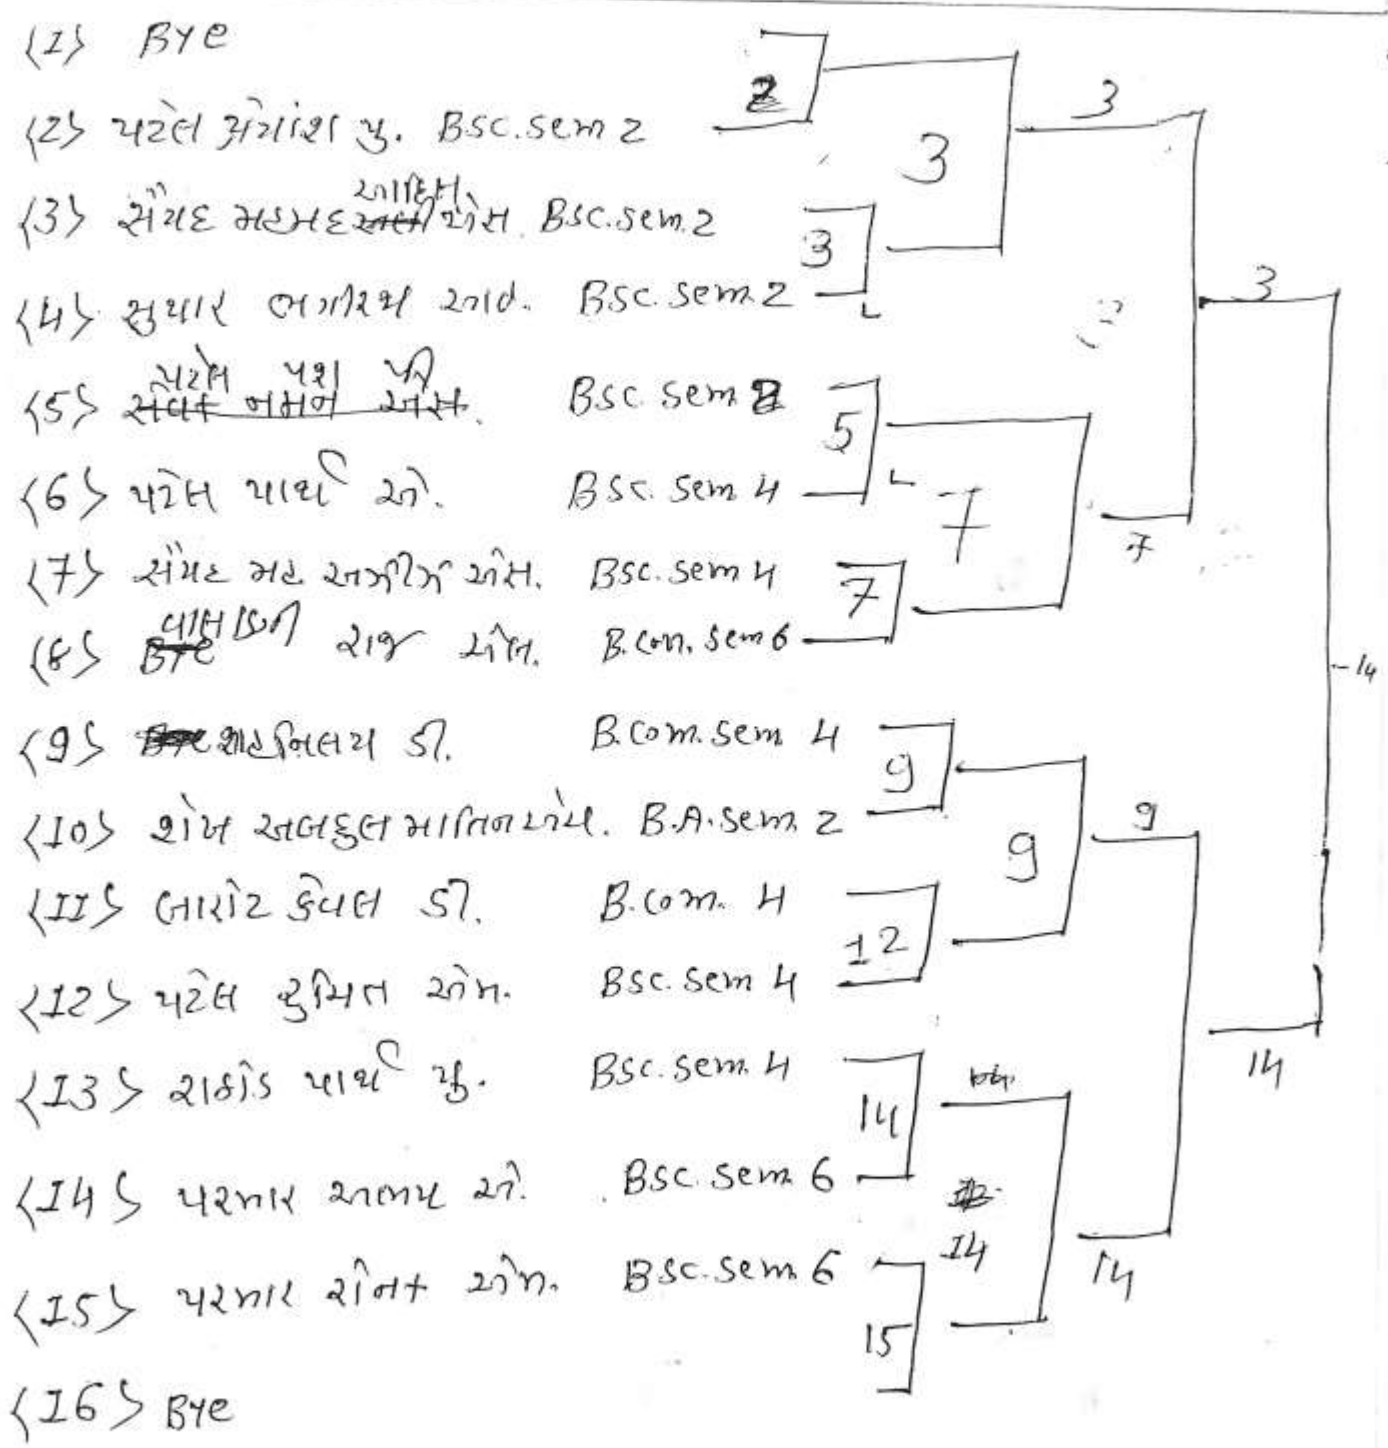 <1> Bye
<2> પટેલ પ્રેયાંશ યુ. BSC.Sem 2
<3> સૈયદ મહમદ આદિલ એસ. BSC.Sem.2
<4> સુથાર ભગીરથ આઇ. BSC.Sem.2
<5> પટેલ યશ પી BSC Sem 2
<6> પટેલ પાર્થ એ. BSC. Sem 4
<7> સૈયદ મહ અઝીઝ એસ. BSC.Sem 4
<8> રાજ એલ. B.Com. Sem 6
<9> શાહ નિલય ડી. B.Com.Sem 4
<10> શેખ અબદુલ માતિન એમ. B.A.Sem. 2
<11> બારોટ કેવલ ડી. B.Com. 4
<12> પટેલ સુમિત એમ. BSC.Sem 4
<13> રાઠોડ પાર્થ યુ. BSC.Sem. 4
<14> પરમાર અભય એ. BSC.Sem 6
<15> પરમાર રોનક એમ. BSC.Sem 6
<16> Bye
2
3
5
7
9
12
14
15
3
7
9
14
3
7
9
14
3
14
14